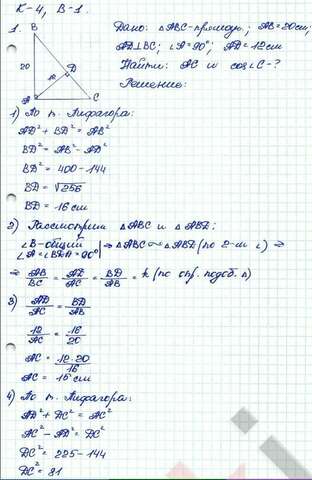 К-4, В-1.
1.
B
20
12
D
A
C
Дано: △ABC-прямоуг., AB=20см;
AD⊥BC; ∠A=90°; AD=12см
Найти: AC и cos∠C-?
Решение:
1) По т. Пифагора:
AD²+BD²=AB²
BD²=AB²-AD²
BD²=400-144
BD=√256
BD=16см
2) Рассмотрим △ABC и △ABD;
∠B-общий
∠A=∠BDA=90° | ⇒ △ABC∼△ABD(по 2-м ∠) ⇒
⇒ AB/BC = AD/AC = BD/AB = k (по опр. подоб. △)
3) AD/AC = BD/AB
12/AC = 16/20
AC = 12·20/16
AC = 15см
4) По т. Пифагора:
AD²+DC²=AC²
AC²-AD²=DC²
DC²=225-144
DC²=81